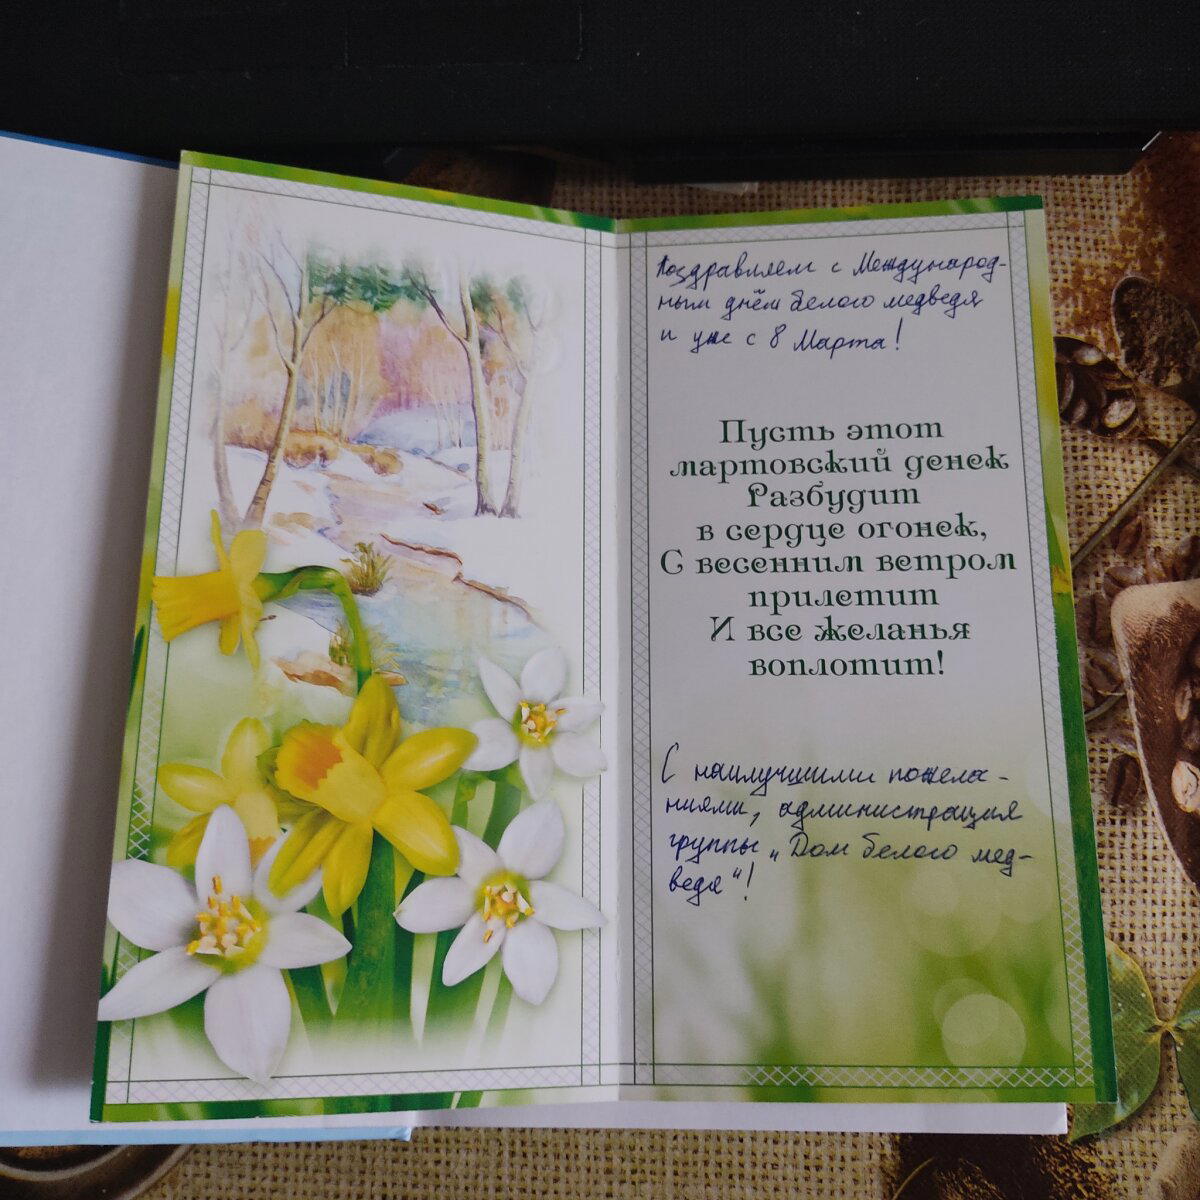 Поздравляем с Международ-
ным днём белого медведя
и уже с 8 Марта!
Пусть этот
мартовский денек
Разбудит
в сердце огонек,
С весенним ветром
прилетит
И все желанья
воплотит!
С наилучшими пожела-
ниями, администрация
группы „Дом белого мед-
ведя“!